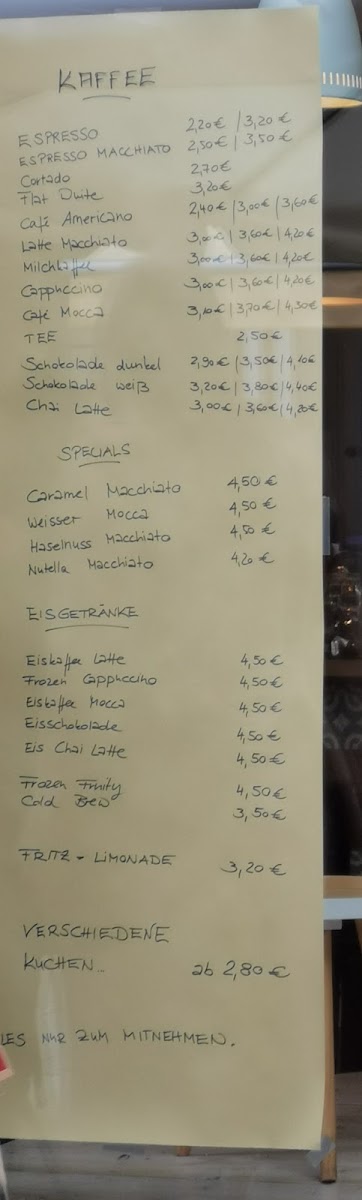 KAFFEE
ESPRESSO 2,20€ | 3,20€
ESPRESSO MACCHIATO 2,50€ | 3,50€
Cortado 2,70€
Flat Duite 3,20€
Café Americano 2,40€ | 3,00€ | 3,60€
Latte Macchiato 3,00€ | 3,60€ | 4,20€
Milchkaffee 3,00€ | 3,60€ | 4,20€
Cappuccino 3,00€ | 3,60€ | 4,20€
Café Mocca 3,10€ | 3,70€ | 4,30€
TEE 2,50€
Schokolade dunkel 2,90€ | 3,50€ | 4,10€
Schokolade weiß 3,20€ | 3,80€ | 4,40€
Chai Latte 3,00€ | 3,60€ | 4,20€
SPECIALS
Caramel Macchiato 4,50€
Weisser Mocca 4,50€
Haselnuss Macchiato 4,50€
Nutella Macchiato 4,20€
EISGETRÄNKE
Eiskaffee Latte 4,50€
Frozen Cappuccino 4,50€
Eiskaffee Mocca 4,50€
Eisschokolade 4,50€
Eis Chai Latte 4,50€
Frozen Fruity 4,50€
Cold Brew 3,50€
FRITZ - LIMONADE 3,20€
VERSCHIEDENE
KUCHEN.. ab 2,80€
LES NUR ZUM MITNEHMEN.